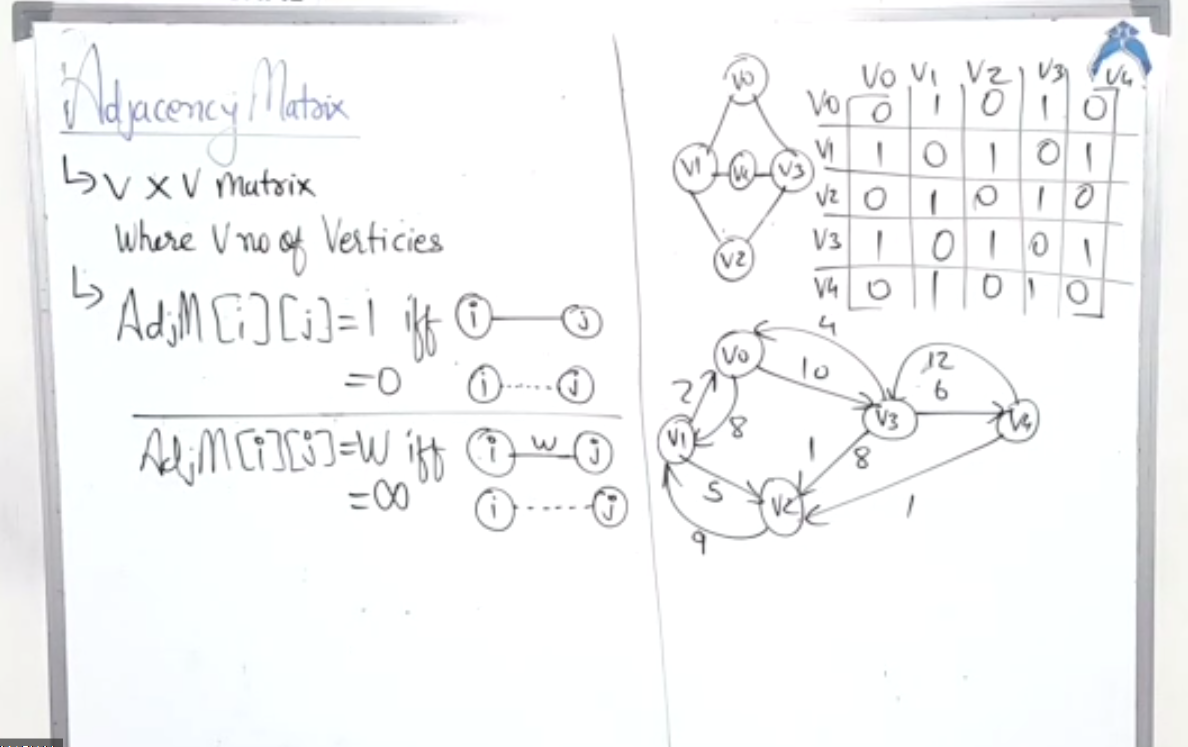 Adjacency Matrix
↳ V X V matrix
Where V no of Verticies
↳ AdjM[i][j]=1 iff i j
=0 i j
AdjM[i][j]=W iff i w j
=∞ i j
V0
V1 V4 V3
V2
V0 V1 V2 V3 V4
V0 0 1 0 1 0
V1 1 0 1 0 1
V2 0 1 0 1 0
V3 1 0 1 0 1
V4 0 1 0 1 0
4
V0 10 12
2 6
8 V3 V4
V1 1 8
5 V2 1
9